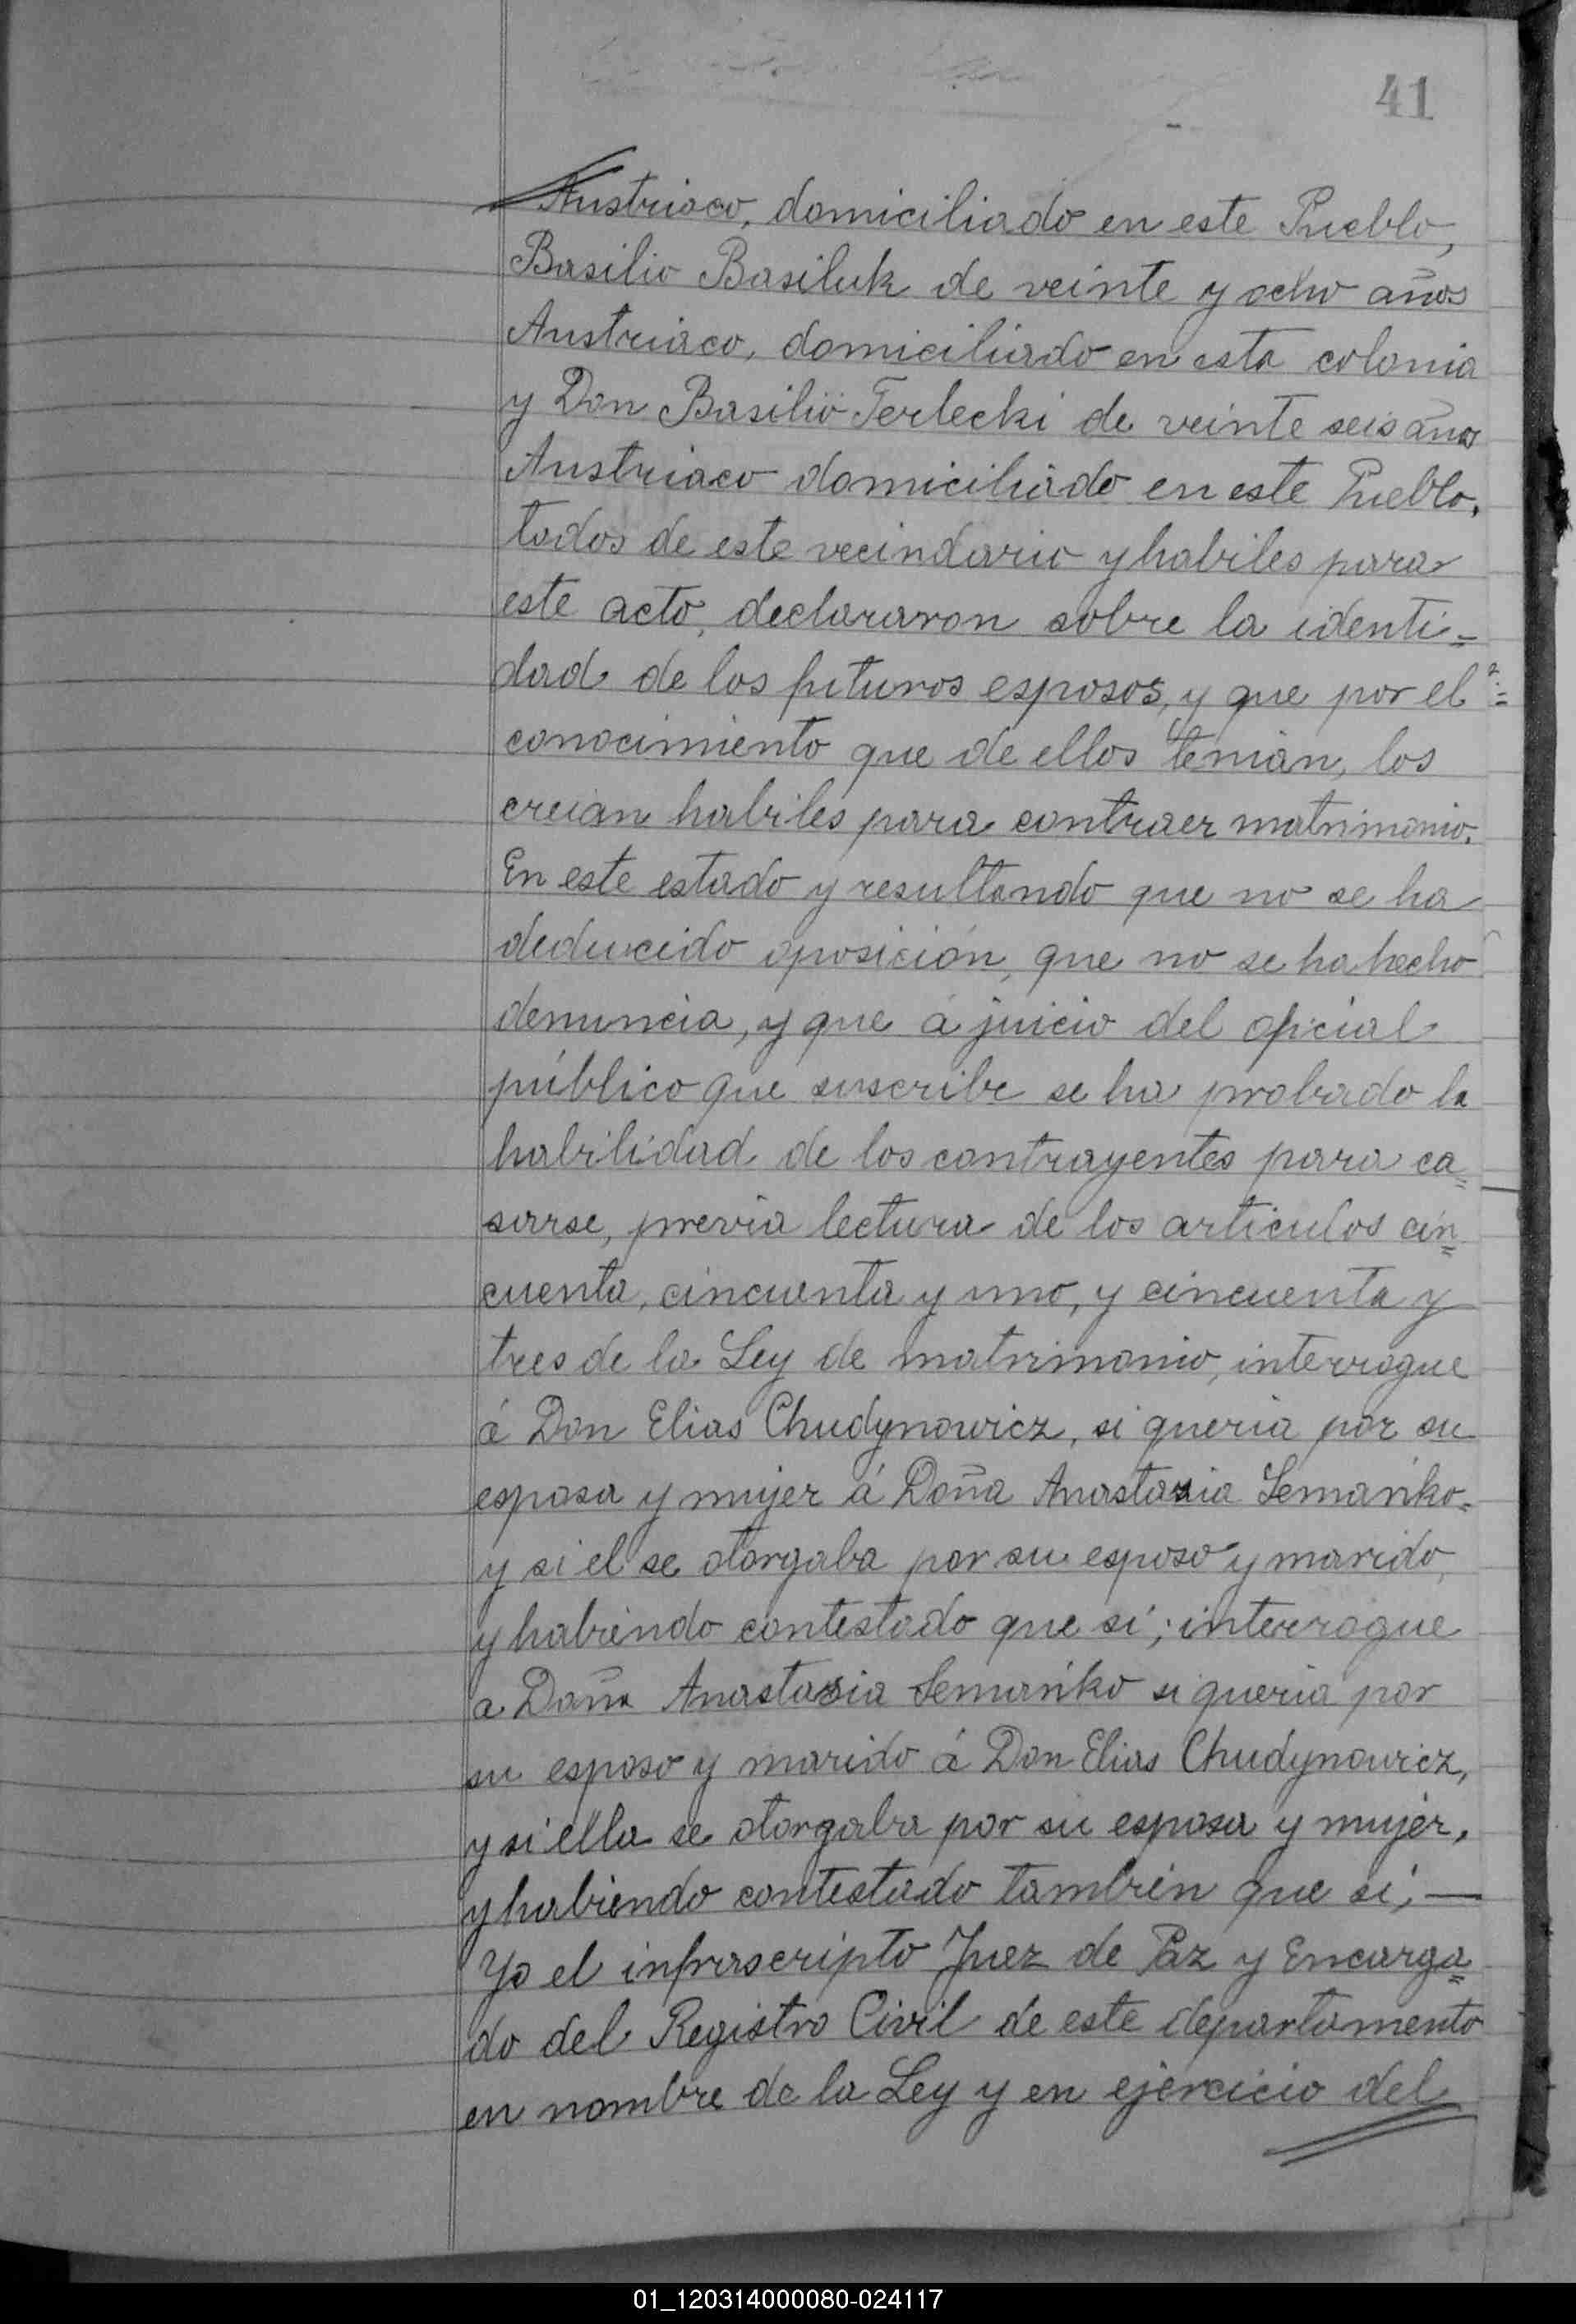 41
Austriaco, domiciliado en este Pueblo,
Basilio Basiluk de veinte y ocho años
Austriaco, domiciliado en esta colonia
y Don Basilio Terlecki de veinte seis años
Austriaco domiciliado en este Pueblo,
todos de este vecindario y habiles para
este acto, declararon sobre la identi=
dad de los futuros esposos, y que por el
conocimiento que de ellos tenian, los
creian habiles para contraer matrimonio.
En este estado y resultando que no se ha
deducido oposición, que no se ha hecho
denuncia, y que á juicio del oficial
público que suscribe se ha probado la
habilidad de los contrayentes para ca=
sarse, previa lectura de los articulos cin=
cuenta, cincuenta y uno, y cincuenta y
tres de la Ley de matrimonio, interrogue
á Don Elias Chudynowicz, si queria por su
esposa y mujer á Doña Anastasia Semańko=
y si el se otorgaba por su esposo y marido,
y habiendo contestado que si; interrogue
a Doña Anastasia Semańko si queria por
su esposo y marido á Don Elias Chudynowicz,
y si ella se otorgaba por su esposa y mujer,
y habiendo contestado tambien que si, —
Yo el infrascripto Juez de Paz y Encarga=
do del Registro Civil de este departamento
en nombre de la Ley y en ejercicio del
01_120314000080-024117